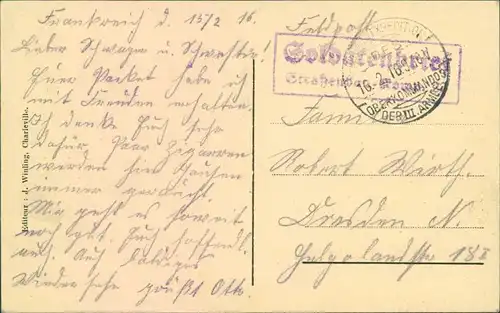 Frankreich d. 15/2 16.
Lieber Schwager und Schwester!
Euer Packet habe ich
mit Freuden erhalten.
Ich danke Euch sehr
dafür. Paar Zigarren
werden hier draußen
immer gebraucht.
Mir geht es soweit
noch gut. Euch hoffendl.
auch. Auf baldiges
Wiedersehn grüßt Otto.
Editeur: J. Winling, Charleville.
Feldpost
Soldatenbrief
Straßenbau
16.2.16
OBERKOMMANDOS
DER III. ARMEE
Familie
Robert Wirth.
Dresden N.
Helgolandstr 18 I